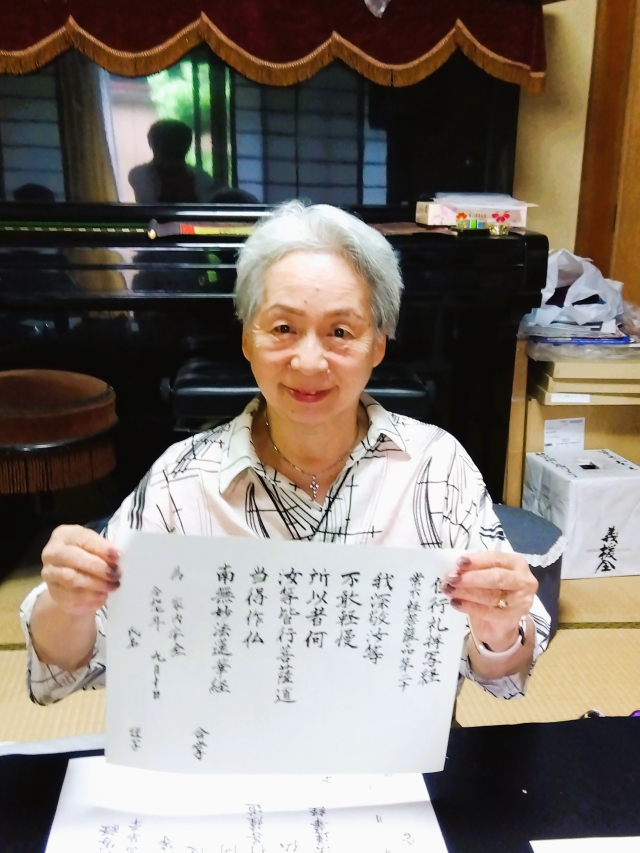 但行礼拝写経
常不軽菩薩品第二十
我深敬汝等
不敢軽慢
所以者何
汝等皆行菩薩道
当得作仏
南無妙法蓮華経
合掌
為 家内安全
令和 年 九月 日
氏名
義援金